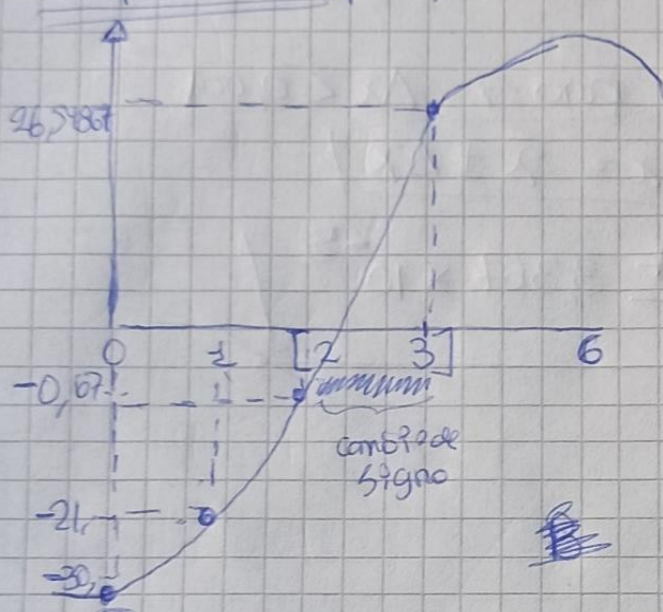 26,54867
0 1 [2 3] 6
-0,67
cambio de
signo
-21,
-30,